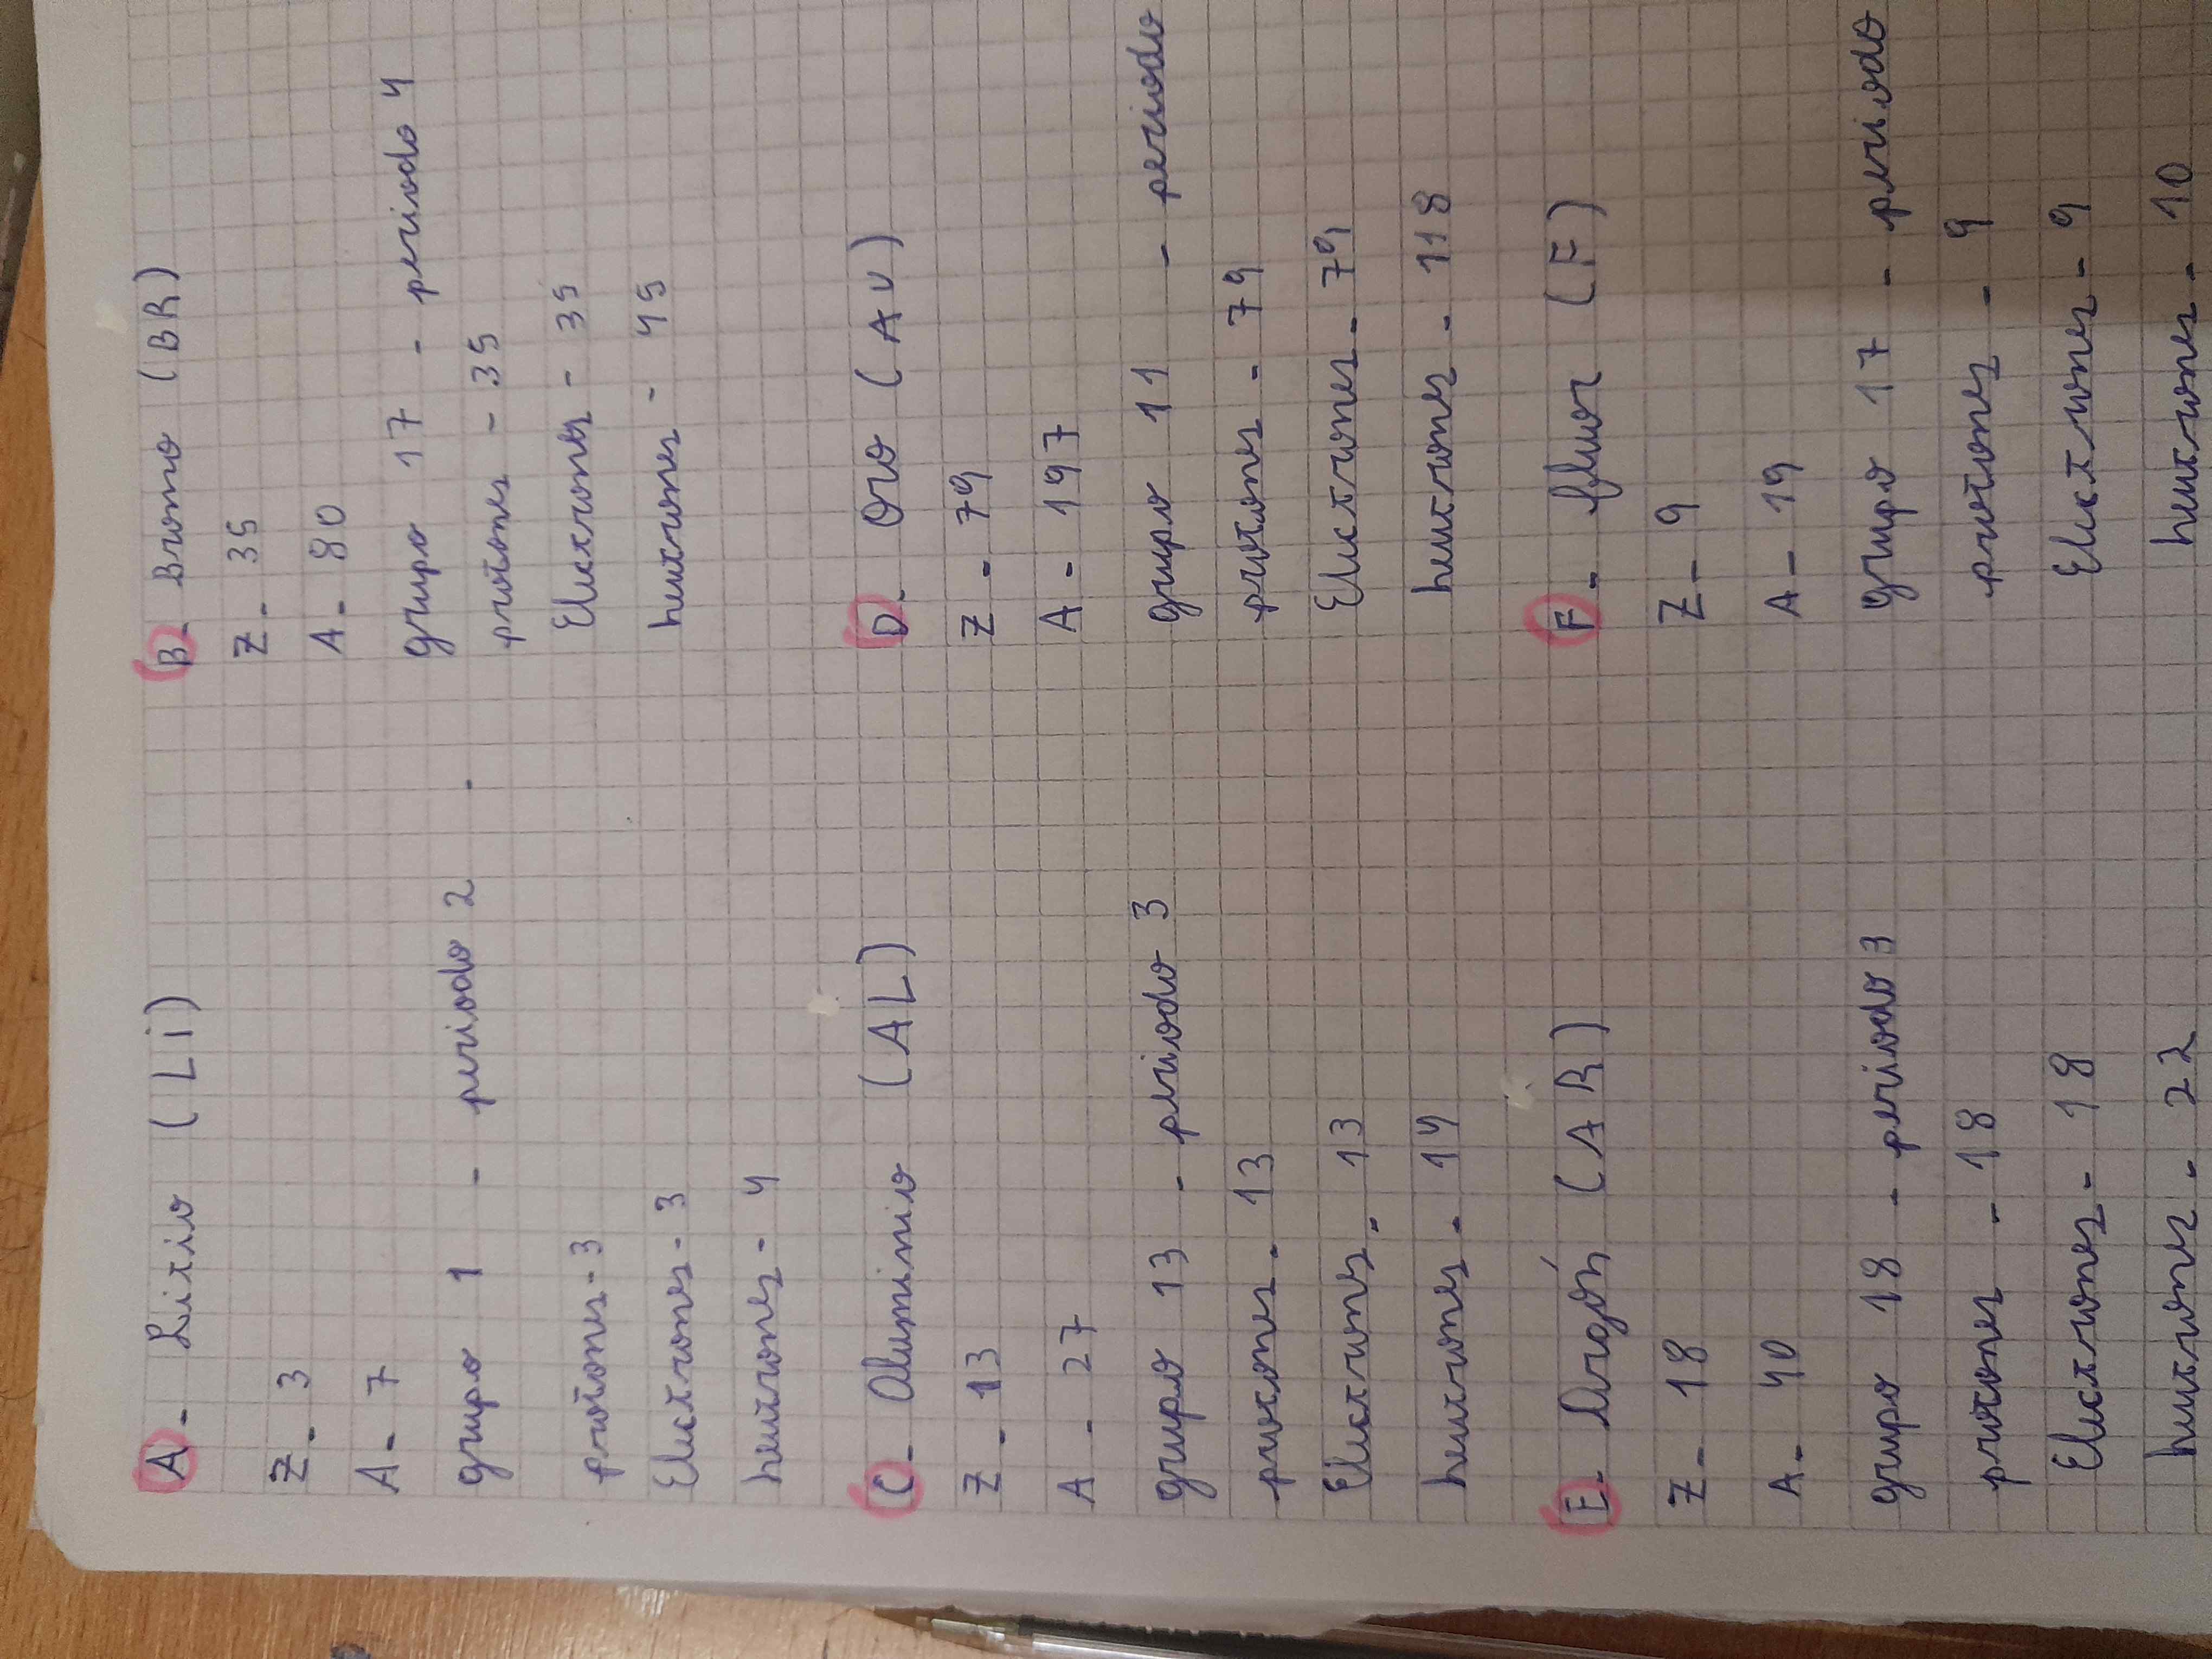 A- Litio (Li)
Z - 3
A - 7
grupo 1 - periodo 2
protones - 3
Electrones - 3
neutrones - 4
B- Bromo (BR)
Z - 35
A - 80
grupo 17 - periodo 4
protones - 35
Electrones - 35
neutrones - 45
C- Aluminio (AL)
Z - 13
A - 27
grupo 13 - periodo 3
protones - 13
Electrones - 13
neutrones - 14
D- Oro (AU)
Z - 79
A - 197
grupo 11 - periodo
protones - 79
Electrones - 79
neutrones - 118
E- Argón (AR)
Z - 18
A - 40
grupo 18 - periodo 3
protones - 18
Electrones - 18
neutrones - 22
F- fluor (F)
Z - 9
A - 19
grupo 17 - periodo
protones - 9
Electrones - 9
neutrones - 10